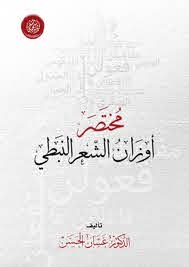 مُختصَر
أوزانُ الشّعرِ النبَطي
تأليف
الدكتور غسّان الحسن